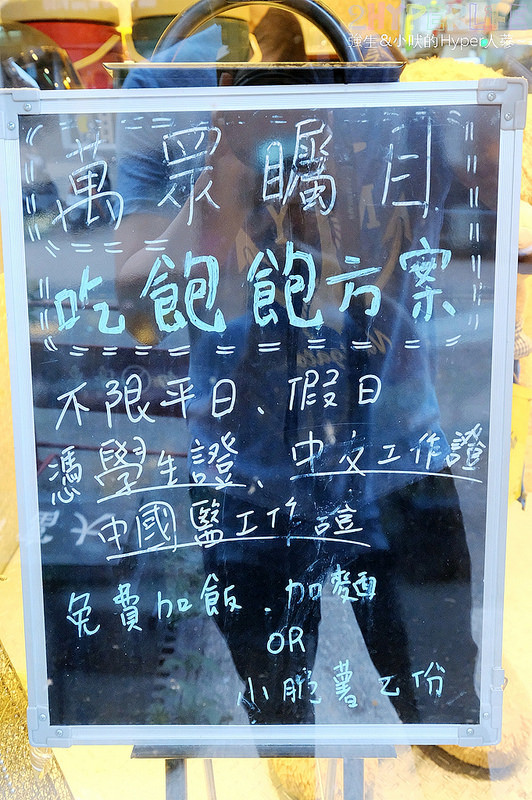 2HYPERLIFE
強生&小吠的Hyper人蔘
萬眾矚目
吃飽飽方案
不限平日、假日
憑學生證、中文工作證
中國醫工作證
免費加飯、加麵
OR
小脆薯乙份